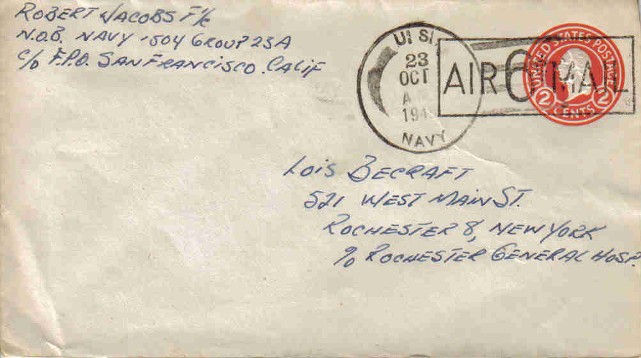 ROBERT JACOBS F 1/c
N.O.B. NAVY 1504 GROUP 23A
c/o F.P.O. SAN FRANCISCO. CALIF
23
OCT
NAVY
AIR 6 MAIL
UNITED STATES POSTAGE
2 CENTS 2
LOIS BECRAFT
521 WEST MAIN ST.
ROCHESTER 8, NEW YORK
% ROCHESTER GENERAL HOSP.